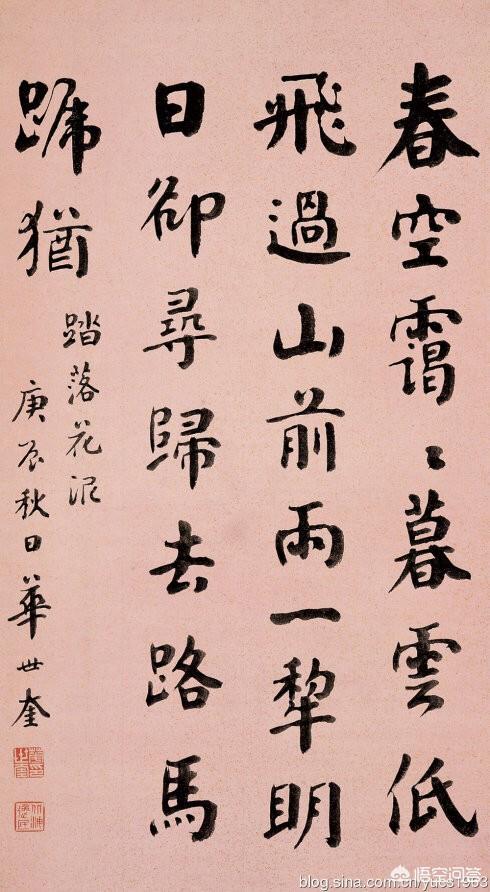 春空靄〻暮雲低
飛過山前雨一犁明
日卻尋歸去路馬
蹄猶
踏落花泥
庚辰秋日華世奎
悟空问答
blog.sina.com.cn/yucs1963